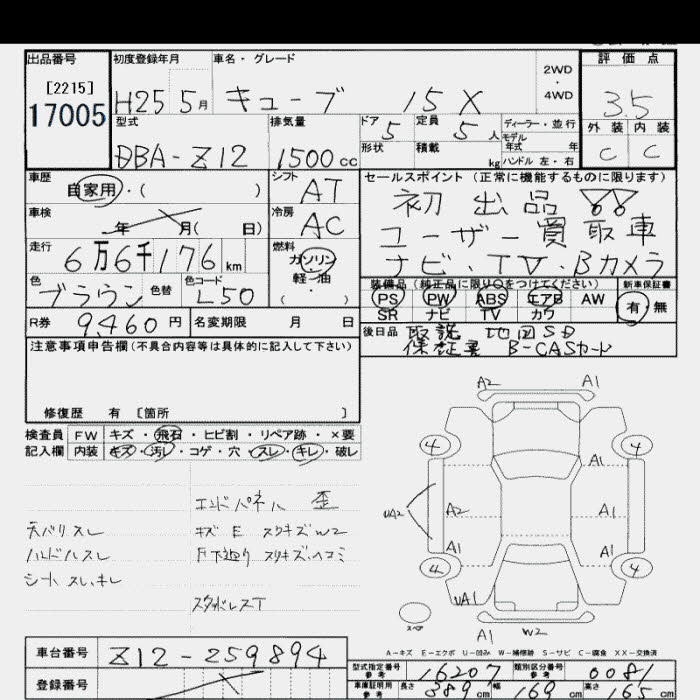 出品番号 初度登録年月 車名・グレード 2WD・4WD 評価点
[2215]
17005
H25 5月 キューブ 15X 3.5
型式 排気量 ドア 5 定員 5人 ディーラー・並行 外装 内装
モデル年式 年
DBA-Z12 1500cc 形状 積載 kg ハンドル 左・右 C C
車歴 シフト セールスポイント(正常に機能するものに限ります)
自家用・( ) AT 初出品
車検 冷房 ユーザー買取車
年 月( 日) AC ナビ・TV・Bカメラ
走行 燃料
6万6千176km ガソリン
軽油
( )
色 色替 色コード 装備品(純正品に限り○をつけてください) 新車保証書
ブラウン L50 PS PW ABS エアB AW 有・無
SR ナビ TV カワ
R券 9,460円 名変期限 月 日 後日品 取説 地図SD
保証書 B-CASカード
注意事項申告欄(不具合内容等は具体的に記入して下さい)
修復歴 有 [箇所 ]
検査員 FW キズ・飛石・ヒビ割・リペア跡・×要
記入欄 内装 キズ・汚レ・コゲ・穴・スレ・キレ・破レ
A2 A1
4 4
A1
UA2 A2 A1
A1 A1
4 4
UA1
スペア
A1 W2
エンドパネル 歪
天バリスレ キズ E スリキズ W2
ハンドルスレ F下廻り スリキズ、ヘコミ
シートスレ、キレ
スタッドレスT
A-キズ E-エクボ U-凹み W-補修跡 S-サビ C-腐食 XX-交換済
車台番号 Z12-259894
型式指定番号 参考 16207 類別区分番号 参考 0081
登録番号
車庫証明用 参考 長さ 389cm 幅 169cm 高さ 165cm